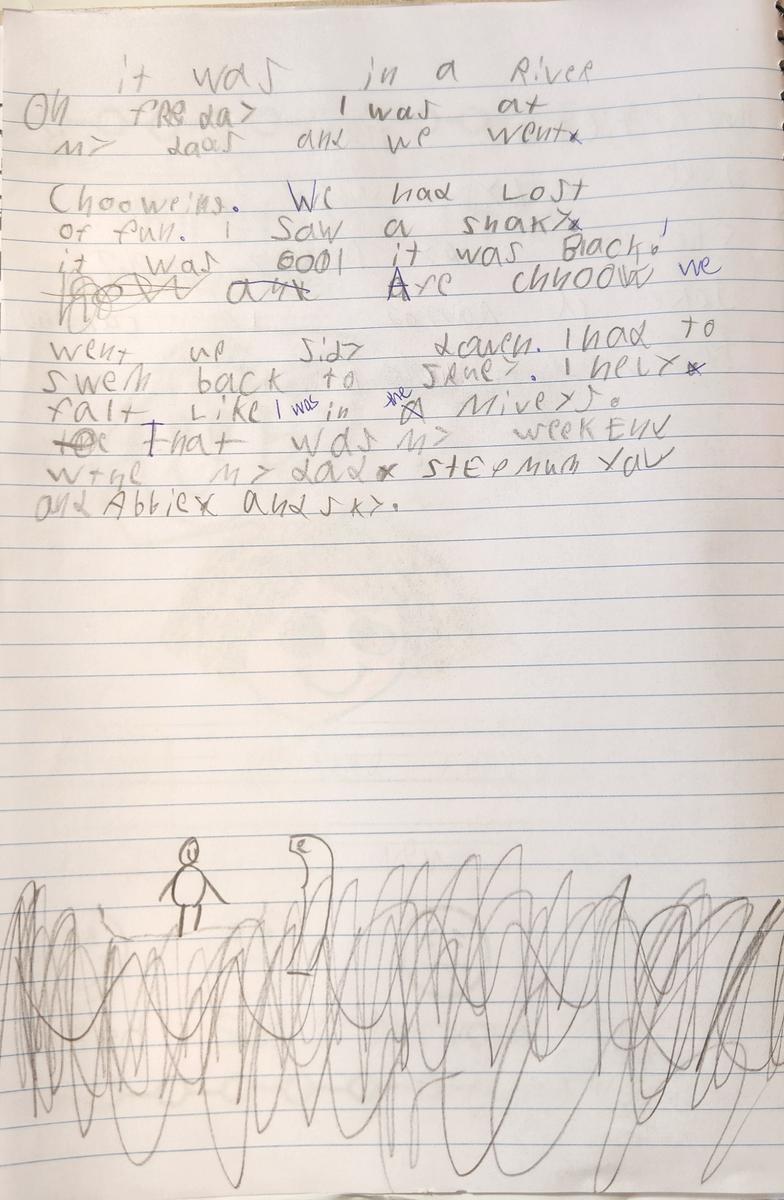 it was in a River
On fREday I was at
my dads and we went
Chooweing. We had Lost
of fun. I saw a snaky
it was cool it was Black!
and Are chnoow we
went up sidy dawen. I had to
swem back to
falt Like I was in the Miveys.
That was my weekEnd
wthe my dad stEpmum
and Abbie and sky.